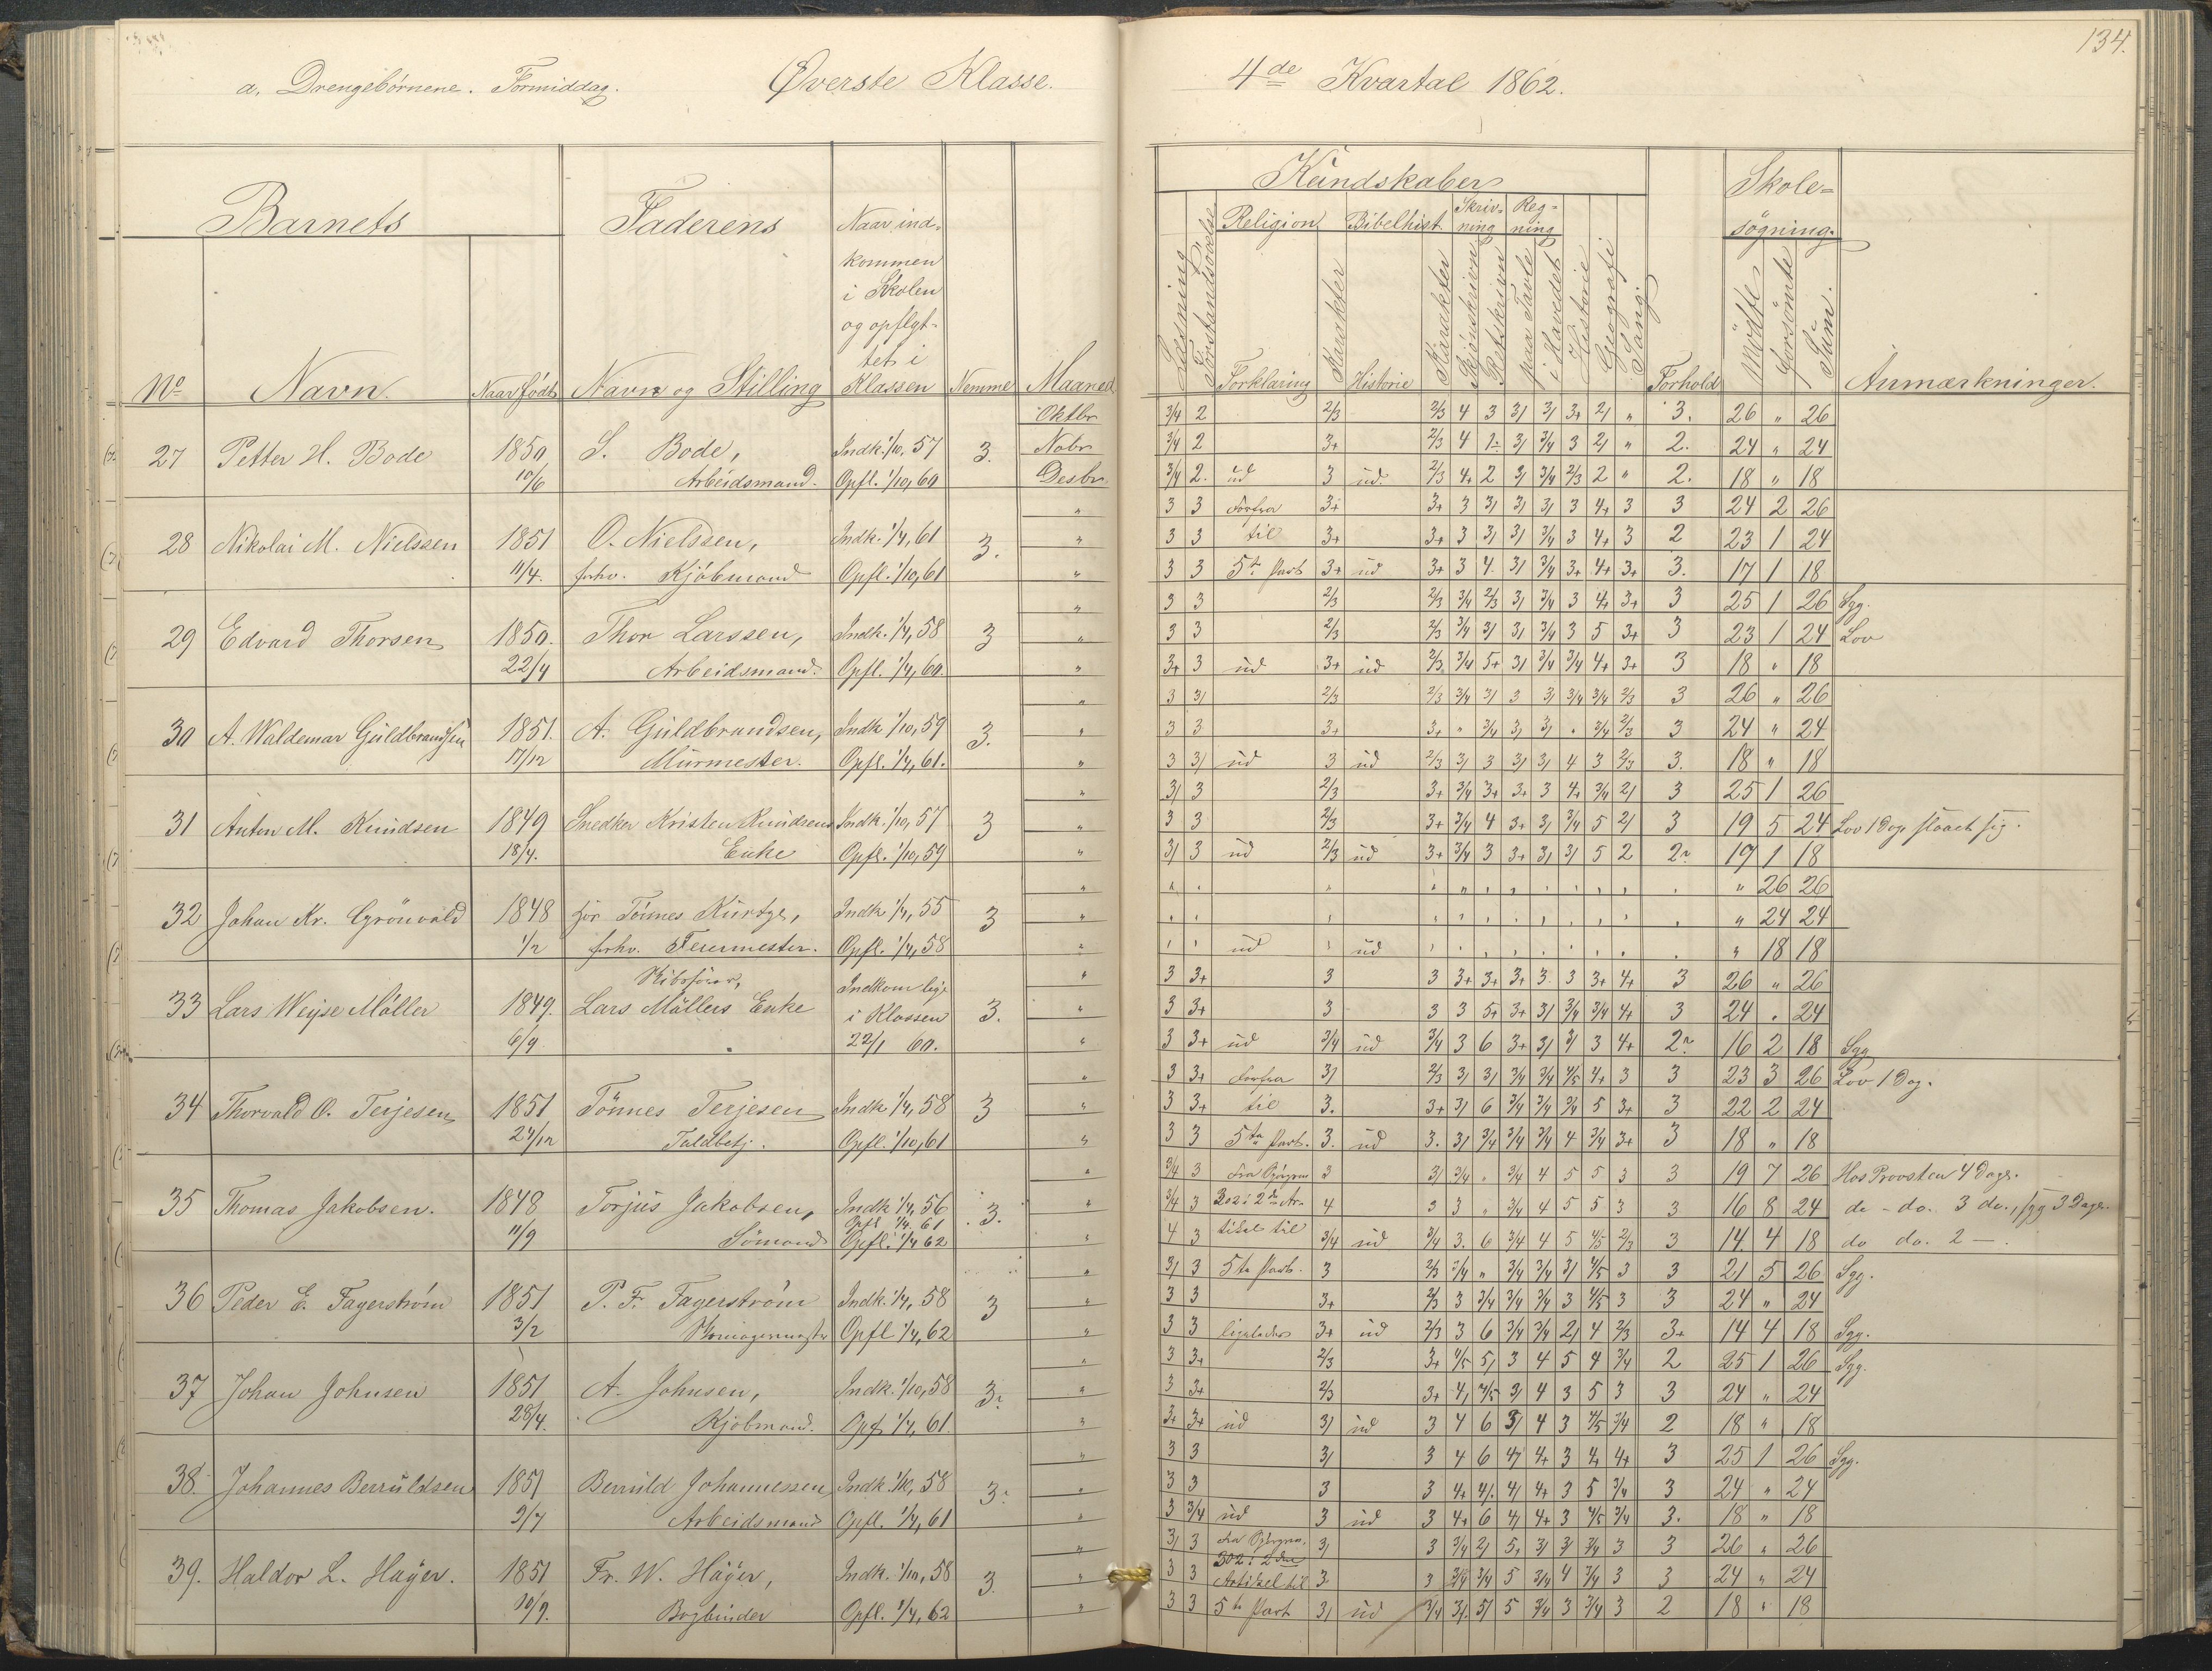 a. Drengebørnene. Formiddag. Øverste Klasse.
Barnets Faderens Naar ind-
kommen
i Skolen
og opflyt-
tet i
No Navn. Naar født Navn og Stilling Klassen Nemme Maaned
Oktbr
27 Petter H. Bode 1850 S. Bode, Indk. 1/10, 57 3. Nobr
10/6 Arbeidsmand. Opfl. 1/10, 60 Desbr.
28 Nikolai M. Nielssen 1851 O. Nielssen, Indk. 1/4, 61 3.
11/4. forhv. Kjöbmand Opfl. 1/10, 61
29 Edvard Thorsen 1850. Thor Larssen, Indk. 1/4, 58 3
22/4 Arbeidsmand. Opfl. 1/4, 60.
30 A. Waldemar Güldbrandsen 1851. A. Güldbrandsen, Indk 1/10, 59 3.
17/12 Mürmester. Opfl. 1/4, 61.
31 Anton M. Knüdsen 1849 Snedker Kristen Knüdsens Indk. 1/10, 57 3
18/4. Enke Opfl. 1/10, 59
32 Johan Kr. Grönvald 1848 for Tönnes Kürtze, Indk 1/4, 55 3
1/2 forhv. Feiermester. Opfl. 1/4, 58
33 Lars Weyse Möller 1849. Lars Möllers Enke Indkom lige i Klassen 3.
6/9 22/1 60.
34 Thorvald O. Terjesen 1851 Tönnes Terjesen Indk 1/4, 58 3
24/12 Toldbetj. Opfl. 1/10, 61
35 Thomas Jakobsen. 1848 Torjüs Jakobsen, Indk 1/4, 56 3.
Opfl 1/4. 61
11/9 Sömand Opfl. 1/4 62
36 Peder E. Fagerström 1851 P. F. Fagerström Indk. 1/4, 58 3
3/2 Opfl 1/4, 62
37 Johan Johnsen 1851 A. Johnsen, Indk. 1/10, 58 3
28/4. Kjöbmand. Opf 1/4, 61.
38. Johannes Berrüldsen 1851 Berrüld Johannessen Indk. 1/10, 58 3.
9/7 Arbeidsmand Opfl. 1/4, 61
39. Haldor L. Häyer. 1851 Fr. W. Häyer, Indk. 1/10, 58 3.
10/9. Bogbinder Opfl. 1/4, 62
134.
4de Kvartal 1862.
Kündskaber Skole-
søgning.
Religion Bibelhist. Skriv-
ning Reg-
ning
Læsning Forstandsøvelse Forklaring Karakter Historie Karakter Skjönskrivn Retskrivn paa Tavle i Hovedet Historie Geografi Sang Forhold Mödte Forsömte Süm. Anmærkninger.
3/4 2 2/3 2/3 4 3 3/ 3/ 3+ 2/ " 3. 26 " 26
3/4 2 3+ 2/3 4 3/ 3/4 3 2/ " 2. 24 " 24
3/4 2. üd 3 üd. 2/3 4+ 2 3/ 3/4 2/3 2 " 2. 18 " 18
3 3 Forfra 3+ 3+ 3 3/ 3/ 3/ 3 4+ 3 3 24 2 26
3 3 til 3+ 3+ 3 3/ 3/ 3/4 3 4+ 3 2 23 1 24
3 3 5te Part 3+ üd 3+ 3 4 3/ 3/4 3+ 4+ 3+ 3. 17 1 18
3 3 2/3 2/3 3/4 2/3 3/ 3/4 3 4+ 3+ 3 25 1 26 Syg.
3 3 2/3 2/3 3/4 3/ 3/ 3/4 3 5 3+ 3 23 1 24 Lov
3+ 3 üd 3+ üd 2/3 3/4 5+ 3/ 3/4 3/4 4+ 3+ 3 18 " 18
3 3/ 2/3 2/3 3/4 3/ 3 3/ 3/4 3/4 2/3 3 26 " 26
3 3 3+ 3+ " 3/4 3/ 3/ " 3/4 2/3 3 24 " 24
3 3/ üd 3 üd 2/3 3/ 3 3/ 3/ 4 3 2/3 3. 18 " 18
3/ 3 2/3 3+ 3/4 3+ 3+ 3 4+ 3/4 2/ 3 25 1 26
3 3 2/3 3+ 3/4 4 3+ 3/ 3/4 5 2/ 3 19 5 24 Lov 1 Dag
3/ 3 üd 2/3 üd 3+ 3/4 3 3+ 3/ 3/ 5 2 2 17 1 18
" 26 26
" 24 24
üd üd " 18 18
3 3+ 3 3 3+ 3+ 3+ 3 3 3+ 4+ 3 26 " 26
3 3+ 3 3 3 5+ 3+ 3/ 3/4 3/4 4+ 3 24 " 24
3 3+ üd 3/4 üd 3/4 3 6 3+ 3/ 3/ 3 4+ 2 16 2 18 Syg
3 3+ Forfra 3/ 2/3 3/ 3/ 3/4 3/4 4/5 4+ 3 3 23 3 26 Lov 1 Dag.
3 3+ til 3. 3+ 3/ 6 3/4 3/4 3/4 5 3+ 3 22 2 24
3 3 5te Part. 3. üd 3. 3/ 3/4 3/4 3/4 4 3/4 3+ 3 18 " 18
3/4 3 3 3/ 3/4 " 3/4 4 5 5 3 3 19 7 26 Hos Provsten 4 Dage.
3/4 3 4 3 3 " 3/4 4 5 5 3 3 16 8 24 do - do. 3 do., syg 3 Dage.
4 3 tikel til 3/4 üd 3/4 3. 6 3/4 4 5 4/5 2/3 3 14 4 18 do do. 2 —.
3/ 3 5te Part. 3 2/3 3/4 " 3/4 3/4 3/ 4/5 3 3 21 5 26 Syg.
3 3 3+ 2/3 3 3/4 3/4 3/4 3 4/5 3 3 24 " 24
3 3 ligeledes 3+ üd 2/3 3 6 3/4 3/4 2/ 4 2/3 3+ 14 4 18 Syg.
3 3+ 2/3 3+ 4/5 5/ 3 4 5 4 3/4 2 25 1 26 Syg.
3 3+ 2/3 3+ 4/ 4/5 3/ 4 3 5 3 3 24 " 24
3+ 3+ üd 3/ üd 3 4 6 3/ 4 3 4/5 3/4 2 18 " 18
3 3 3/ 3 4 6 4/ 4+ 3 4+ 4+ 3 25 1 26 Syg.
3 3 3 3 4+ 4/. 4/ 4+ 3 5 3/4 3 24 " 24
3 3/4 üd 3 üd 3 4+ 6 4/ 4+ 3 4/5 3/4 3. 18 " 18
3/ 3 3/ 3 3/4 2/ 5+ 3/ 3/ 3/4 3 3 26 " 26
3 3 Artikel til 3 3 3/4 3/4 5 3/4 4 3/4 3 3 24 " 24
3 3 5te Part 3/ üd 3/4 3/. 5/ 5 3/4 3 3/4 3 2 18 " 18